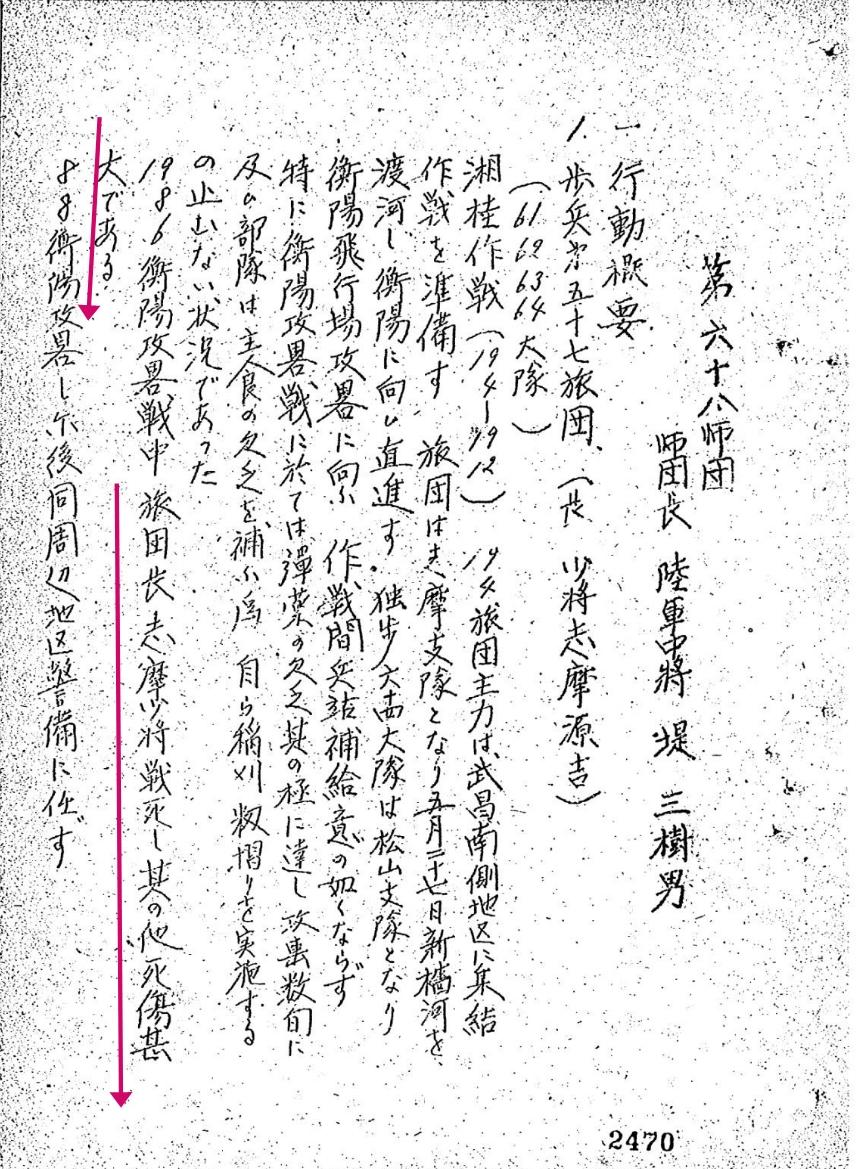 第六十八師団
師団長 陸軍中將 堤 三樹男
一 行動概要
1. 歩兵第五十七旅団、(長 少將志摩源吉)
(61 62 63 64大隊)
湘桂作戦(19.4―19.12) 19.4旅団主力は、武昌南側地区に集結
作戦を準備す 旅団は志摩支隊となり五月二十七日新墻河を
渡河し衡陽に向ひ直進す。独歩六四大隊は松山支隊となり
衡陽飛行場攻畧に向ふ 作戦間兵站補給意の如くならず
特に衡陽攻畧戦に於ては彈薬の欠乏其の極に達し攻囲数旬に
及ひ部隊は主食の欠乏を補ふ為 自ら稲刈 籾摺りを実施する
の止むない状況であった
19 8 6 衡陽攻畧戦中 旅団長志摩少將戦死し其の他死傷甚
大である
8 8 衡陽攻畧し 後同周辺地区警備に任ず
2470